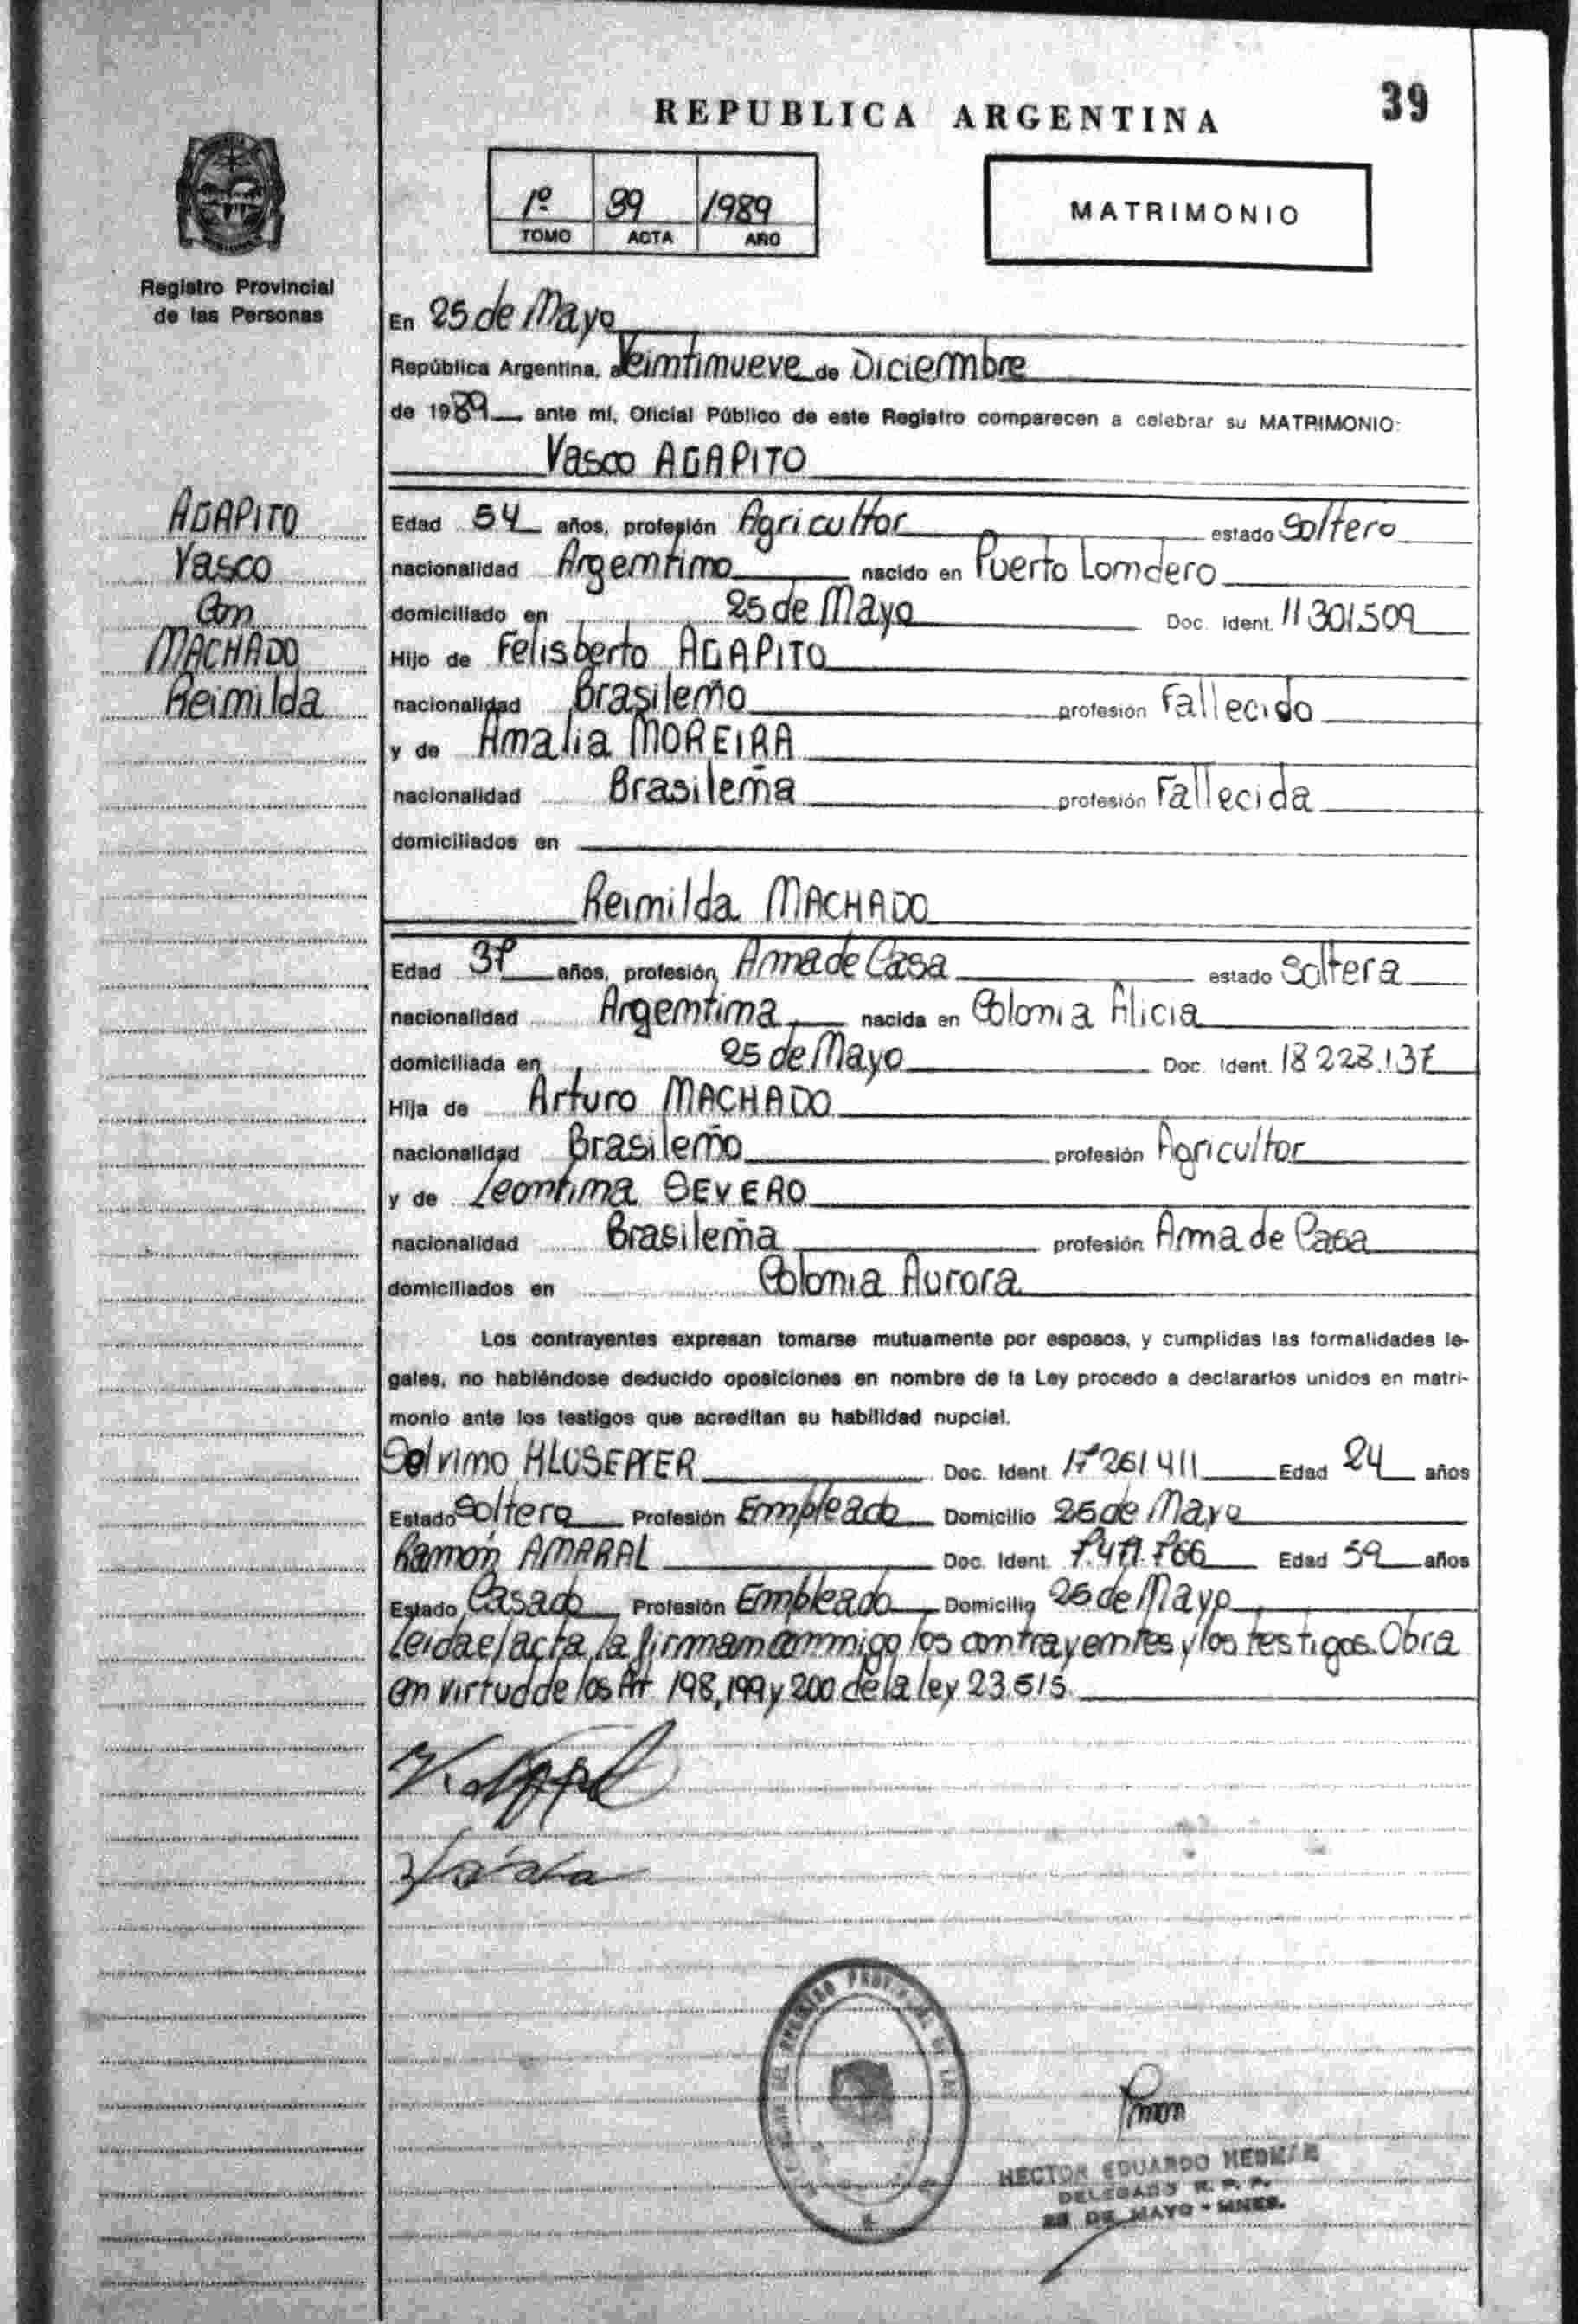 REPUBLICA ARGENTINA
39
1º 39 1989
TOMO ACTA AÑO
MATRIMONIO
Registro Provincial
de las Personas
En 25 de Mayo
República Argentina, a Veintinueve de Diciembre
de 1989 ante mí, Oficial Público de este Registro comparecen a celebrar su MATRIMONIO:
Vasco AGAPITO
AGAPITO
Vasco
Con
MACHADO
Reinilda
Edad 54 años, profesión Agricultor estado Soltero
nacionalidad Argentino nacido en Puerto Londero
domiciliado en 25 de Mayo Doc. Ident. 11301.509
Hijo de Felisberto AGAPITO
nacionalidad Brasileño profesión Fallecido
y de Amalia MOREIRA
nacionalidad Brasileña profesión Fallecida
domiciliados en
Reinilda MACHADO
Edad 37 años, profesión Ama de Casa estado Soltera
nacionalidad Argentina nacida en Colonia Alicia
domiciliada en 25 de Mayo Doc. Ident. 18223.137
Hija de Arturo MACHADO
nacionalidad Brasileño profesión Agricultor
y de Leontina SEVERO
nacionalidad Brasileña profesión Ama de Casa
domiciliados en Colonia Aurora
Los contrayentes expresan tomarse mutuamente por esposos, y cumplidas las formalidades le-
gales, no habiéndose deducido oposiciones en nombre de la Ley procedo a declararlos unidos en matri-
monio ante los testigos que acreditan su habilidad nupcial.
Selvino Doc. Ident. 17261411 Edad 24 años
Estado Soltero Profesión Empleado Domicilio 25 de Mayo
Ramón AMARAL Doc. Ident. 7.477.766 Edad 59 años
Estado Casado Profesión Empleado Domicilio 25 de Mayo
Leida el acta, la firman conmigo los contrayentes y los testigos. Obra
en virtud de los Art. 198, 199 y 200 de la ley 23.515.
HECTOR EDUARDO
DELEGADO R. P. P.
25 DE MAYO - MNES.